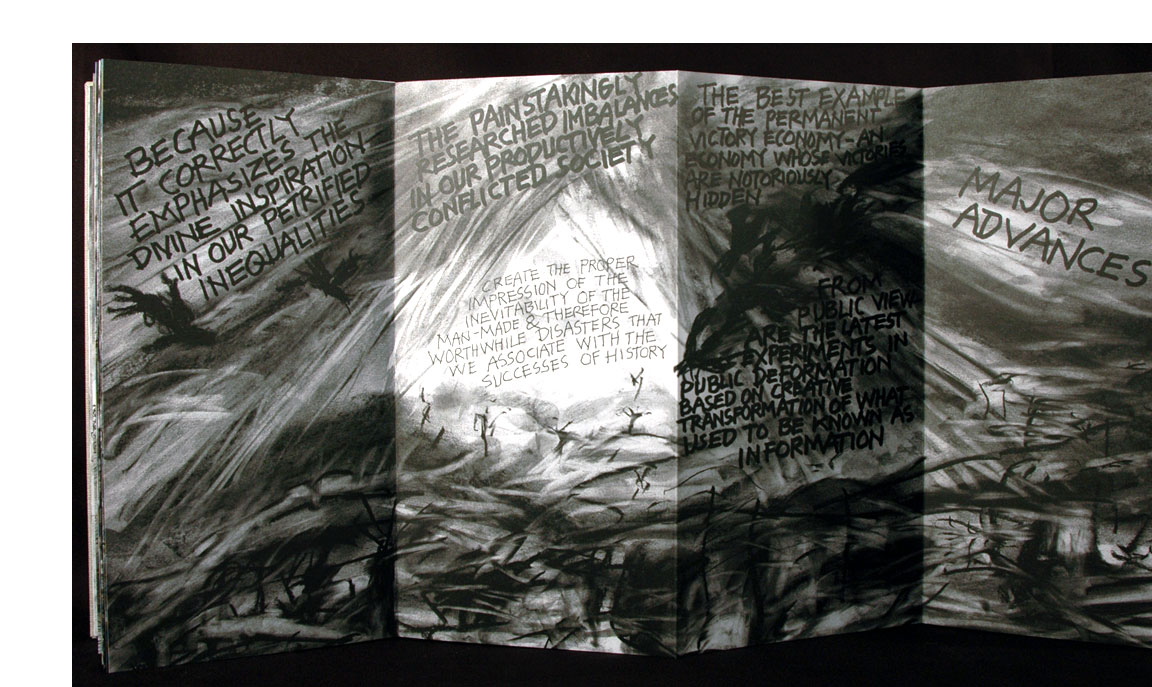 BECAUSE
IT CORRECTLY
EMPHASIZES THE
DIVINE INSPIRATION-
IN OUR PETRIFIED
INEQUALITIES
THE PAINSTAKINGLY
RESEARCHED IMBALANCES
IN OUR PRODUCTIVELY
CONFLICTED SOCIETY
CREATE THE PROPER
IMPRESSION OF THE
INEVITABILITY OF THE
MAN-MADE & THEREFORE
WORTHWHILE DISASTERS THAT
WE ASSOCIATE WITH THE
SUCCESSES OF HISTORY
THE BEST EXAMPLE
OF THE PERMANENT
VICTORY ECONOMY-AN
ECONOMY WHOSE VICTORIES
ARE NOTORIOUSLY
HIDDEN
FROM
PUBLIC VIEW-
ARE THE LATEST
EXPERIMENTS IN
PUBLIC DEFORMATION
BASED ON CREATIVE
TRANSFORMATION OF WHAT
USED TO BE KNOWN AS
INFORMATION
MAJOR
ADVANCES